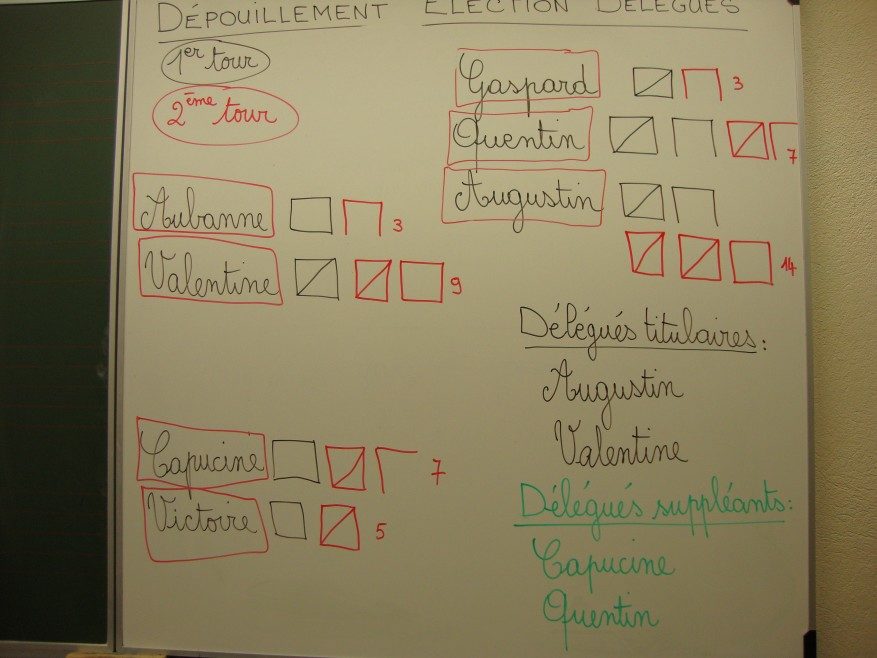 DÉPOUILLEMENT ÉLECTION DÉLÉGUÉS
1er tour
2ème tour
Aubanne 3
Valentine 9
Capucine 7
Victoire 5
Gaspard 3
Quentin 7
Augustin
14
Délégués titulaires:
Augustin
Valentine
Délégués suppléants:
Capucine
Quentin